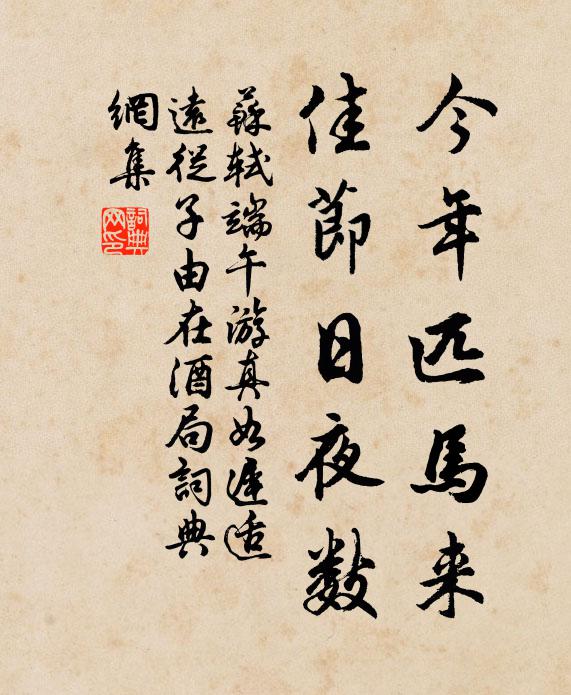 今年匹馬来
佳節日夜數
蘇軾端午游真如遲适
遠從子由在酒局詞典
網集
詞典网印